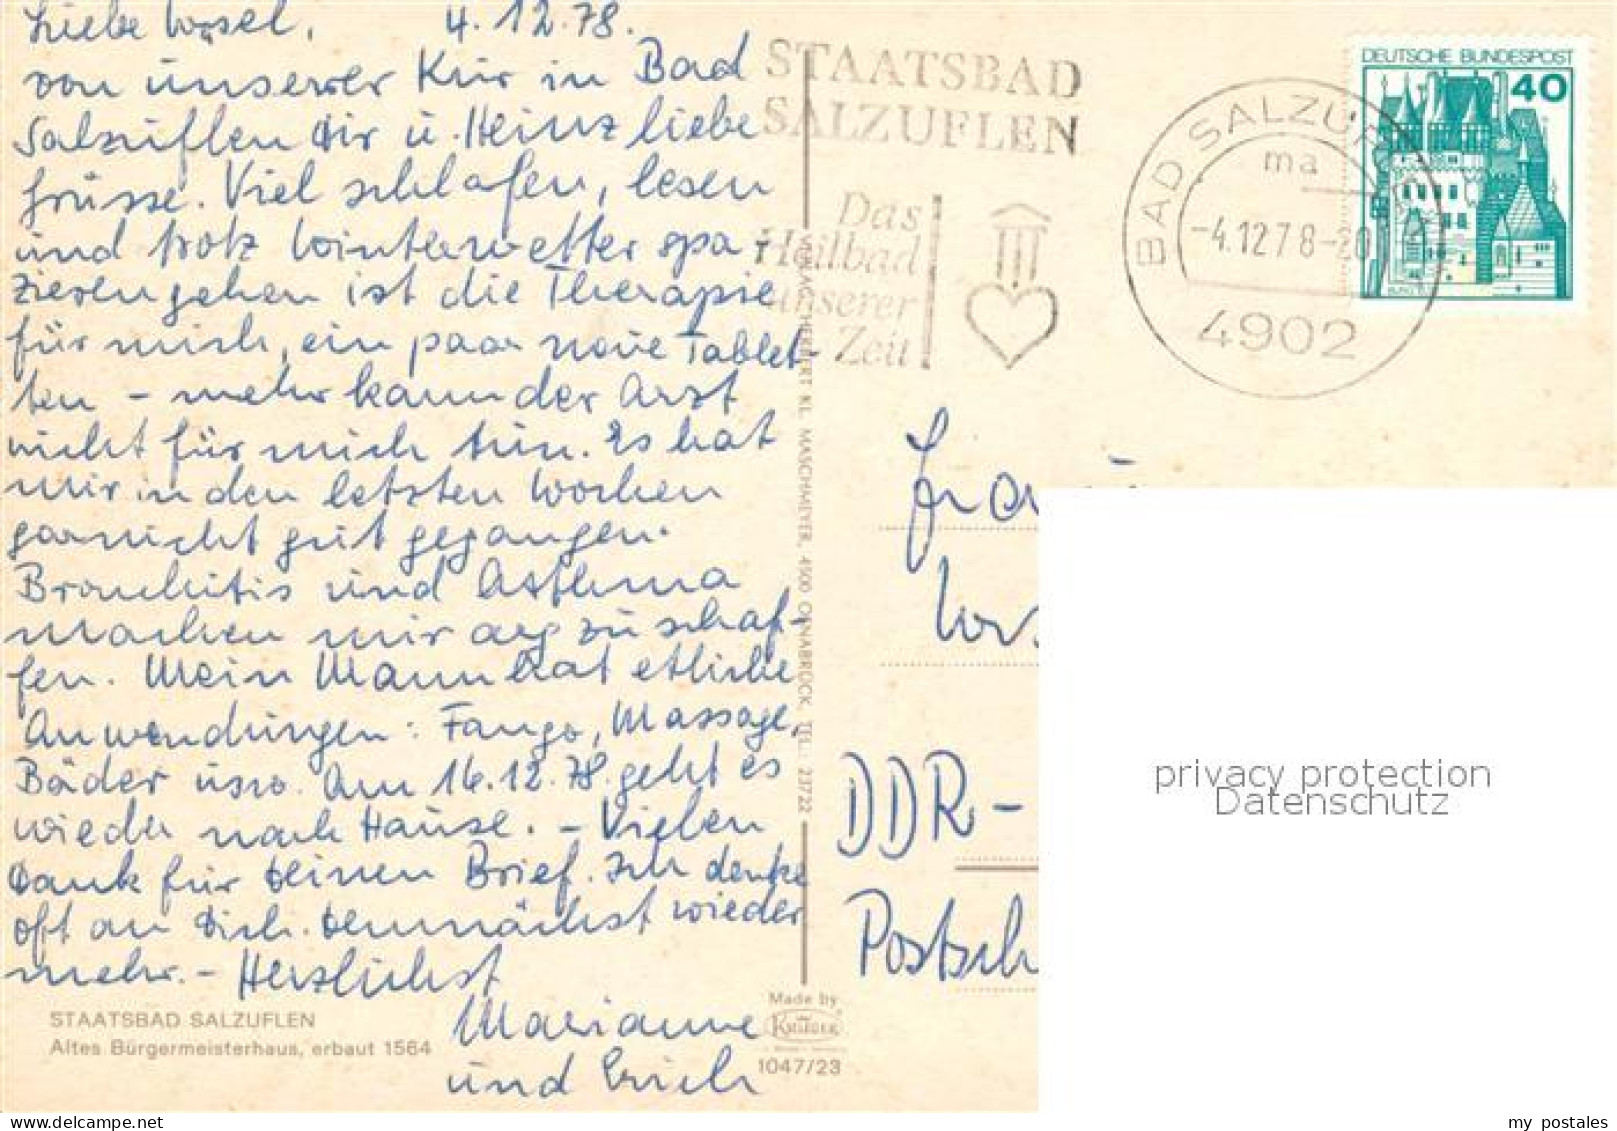 Liebe Ursel, 4.12.78.
von unserer Kur in Bad
Salzuflen Dir u. Heinz liebe
Grüsse. Viel schlafen, lesen
und trotz Winterwetter spa-
zierengehen ist die Therapie
für mich, ein paar neue Tablet-
ten – mehr kann der Arzt
nicht für mich tun. Es hat
mir in den letzten Wochen
garnicht gut gegangen.
Bronchitis und Asthma
machen mir arg zu schaf-
fen. Mein Mann hat etliche
Anwendungen: Fango, Massage,
Bäder usw. Am 16.12.78. geht es
wieder nach Hause. – Vielen
Dank für Deinen Brief. Ich denke
oft an Dich. Demnächst wieder
mehr. – Herzlichst
Marianne
und Erich
STAATSBAD SALZUFLEN
Altes Bürgermeisterhaus, erbaut 1564
VERLAG HERBERT KL. MASCHMEYER, 4500 OSNABRÜCK, TEL.: 23722
Made by
KRÜGER
1047/23
STAATSBAD
SALZUFLEN
Das
Heilbad
unserer
Zeit
BAD SALZUFLEN
ma
-4.12.78-20
4902
DEUTSCHE BUNDESPOST
40
Frau
DDR-
Postsch
privacy protection
Datenschutz
delcampe.net
my_postales